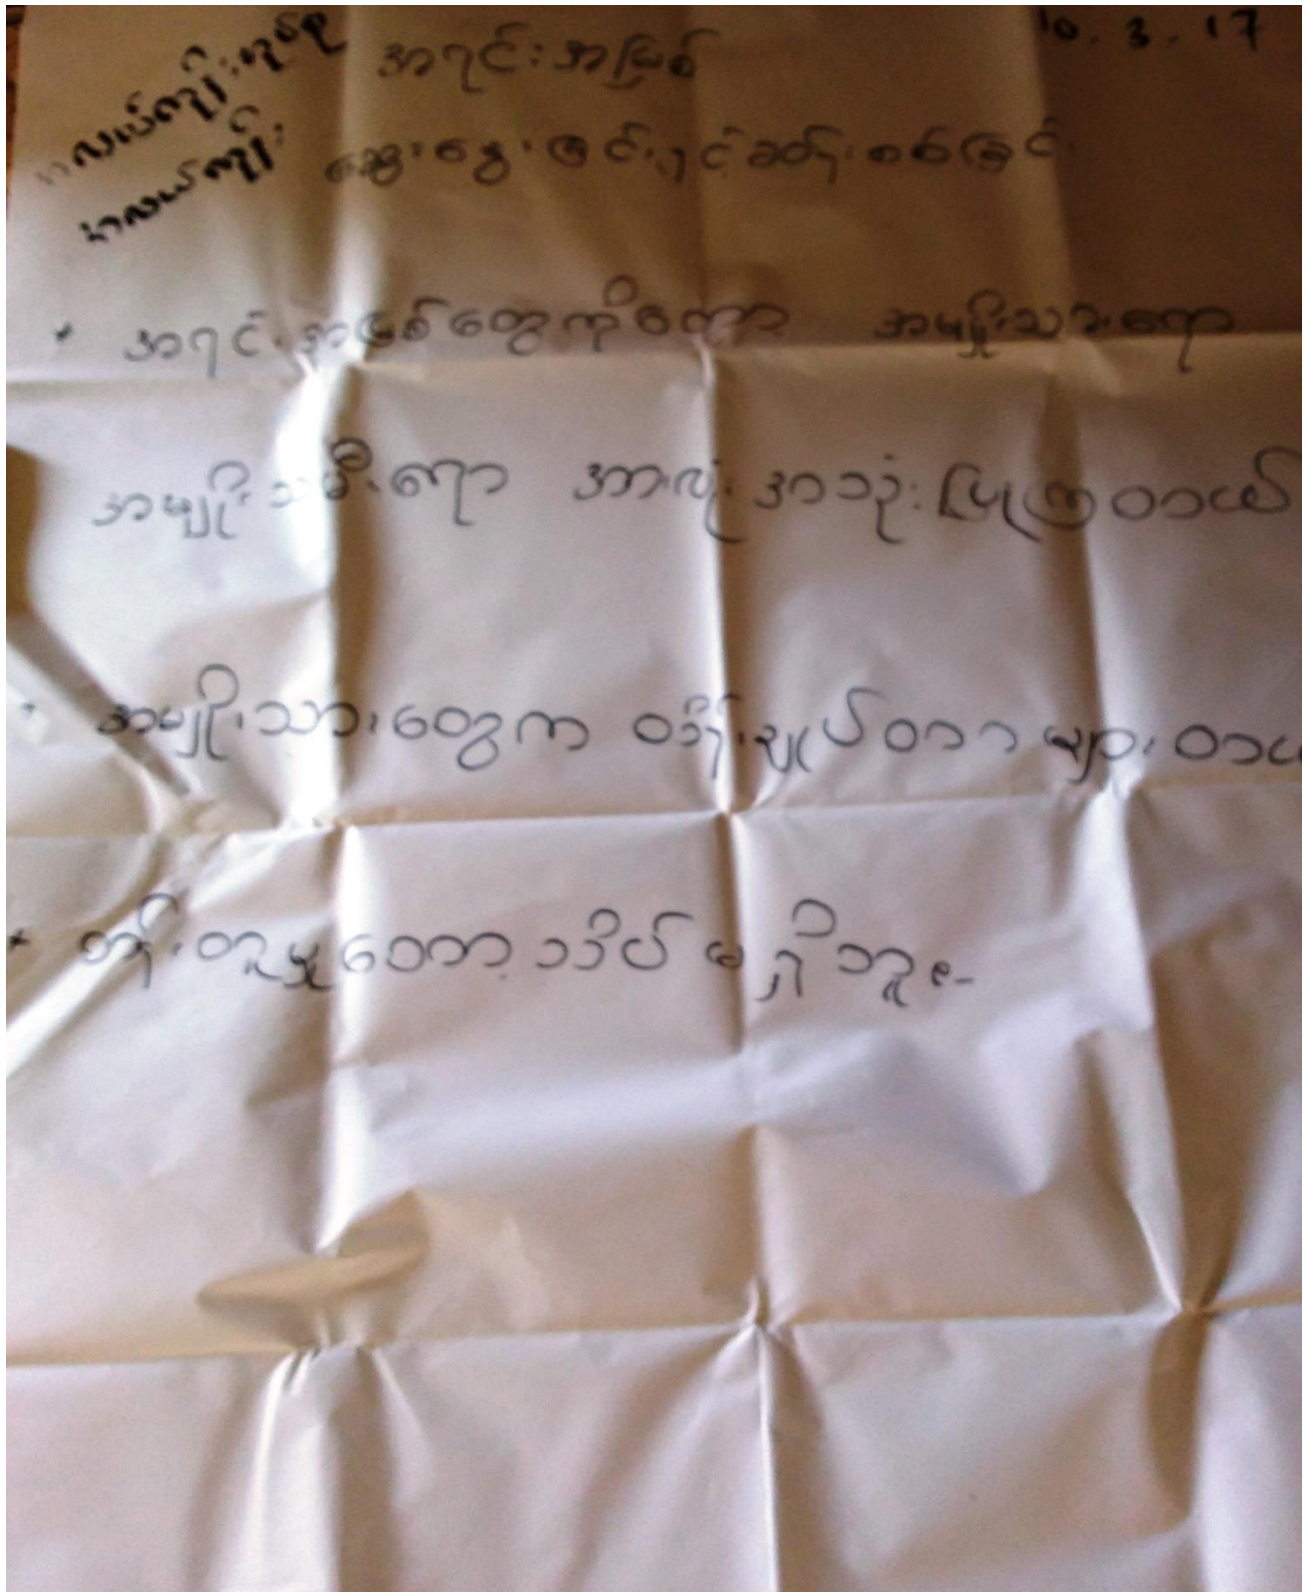 10.3.17
အရင်းအမြစ်
ဆွေးနွေးခြင်းနှင့်ဆန်းစစ်ခြင်း
* အရင်းအမြစ်တွေကိုတော့ အမျိုးသားရော
အမျိုးသမီးရော အားလုံးအသုံးပြုကြတယ်
အမျိုးသားတွေက ထိန်းချုပ်တာများတယ်
* တန်းတူမှုတော့သိပ်မရှိဘူး